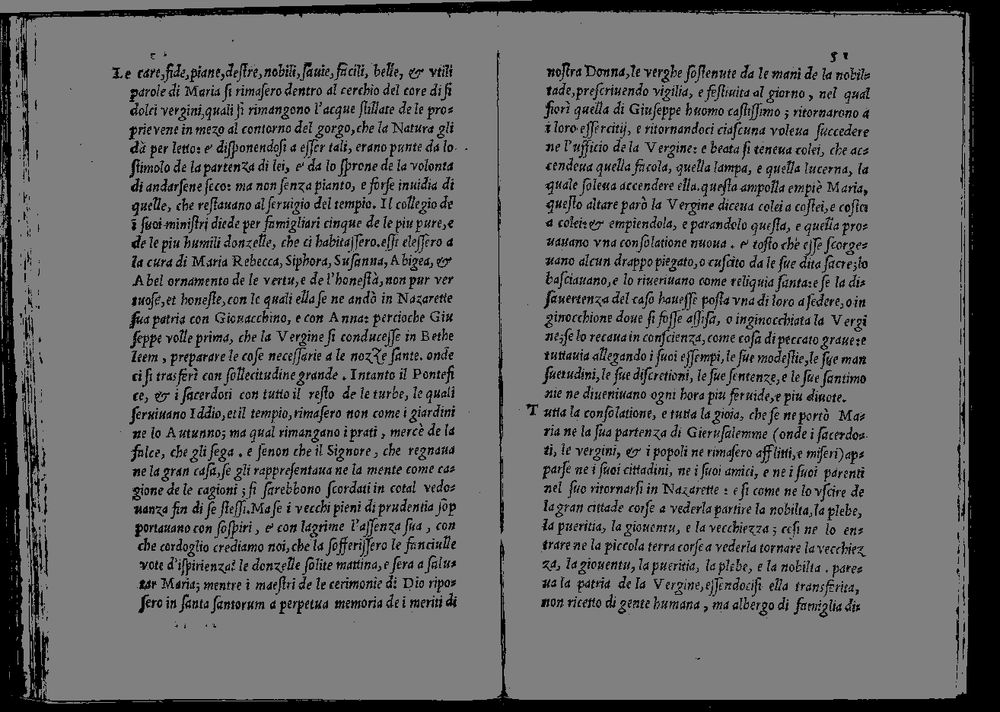 Le care, fide, piane, destre, nobili, sauie, facili, belle, & vtili
parole di Maria si rimasero dentro al cerchio del core di si
dolci vergini, quali si rimangono l'acque stillate de le pro-
prie vene in mezo al contorno del gorgo, che la Natura gli
dà per letto: e disponendosi a esser tali, erano punte da lo
stimolo de la partenza di lei, e da lo sprone de la volonta
di andarsene seco: ma non senza pianto, e forse inuidia di
quelle, che restauano al seruigio del tempio. Il collegio de
i suoi ministri diede per famigliari cinque de le piu pure, e
de le piu humili donzelle, che ci habitassero. essi elessero a
la cura di Maria Rebecca, Siphora, Susanna, Abigea, &
Abel ornamento de le vertu, e de l'honestà, non pur ver
tuose, et honeste, con le quali ella se ne andò in Nazarette
sua patria con Giouacchino, e con Anna: percioche Giu
seppe volle prima, che la Vergine si conducesse in Bethe
leem, preparare le cose necessarie a le nozze sante. onde
ci si trasferì con sollecitudine grande. Intanto il Pontefi
ce, & i sacerdoti con tutto il resto de le turbe, le quali
seruiuano Iddio, et il tempio, rimasero non come i giardini
ne lo Autunno; ma qual rimangano i prati, mercè de la
falce, che gli sega. e senon che il Signore, che regnaua
ne la gran casa, se gli rappresentaua ne la mente come ca-
gione de le cagioni; si sarebbono scordati in cotal vedo-
uanza fin di se stessi. Ma se i vecchi pieni di prudentia sop
portauano con sospiri, & con lagrime l'assenza sua, con
che cordoglio crediamo noi, che la sofferissero le fanciulle
vote d'ispirienza? le donzelle solite mattina, e sera a salu-
tar Maria; mentre i maestri de le cerimonie di Dio ripo-
sero in santa santorum a perpetua memoria de i meriti di
51
nostra Donna, le verghe sostenute da le mani de la nobil-
tade, prescriuendo vigilia, e festiuita al giorno, nel qual
fiorì quella di Giuseppe huomo castissimo; ritornarono a
i loro essercitij, e ritornandoci ciascuna voleua succedere
ne l'ufficio de la Vergine: e beata si teneua colei, che ac-
cendeua quella facola, quella lampa, e quella lucerna, la
quale soleua accendere ella. questa ampolla empiè Maria,
questo altare parò la Vergine diceua colei a costei, e costei
a colei: & empiendola, e parandolo questa, e quella pro-
uauano vna consolatione nuoua. e tosto che esse scorge-
uano alcun drappo piegato, o cuscito da le sue dita sacre; lo
basciauano, e lo riueriuano come reliquia santa: e se la di-
sauertenza del caso hauesse posta vna di loro a sedere, o in
ginocchione doue si fosse assisa, o inginocchiata la Vergi
ne; se lo recaua in conscienza, come cosa di peccato graue: e
tuttauia allegando i suoi essempi, le sue modestie, le sue man
suetudini, le sue discretioni, le sue sentenze, e le sue santimo
nie ne diueniuano ogni hora piu feruide, e piu diuote.
Tutta la consolatione, e tutta la gioia, che se ne portò Ma-
ria ne la sua partenza di Gierusalemme (onde i sacerdo-
ti, le vergini, & i popoli ne rimasero afflitti, e miseri) ap-
parse ne i suoi cittadini, ne i suoi amici, e ne i suoi parenti
nel suo ritornarsi in Nazarette: e si come ne lo vscire de
la gran cittade corse a vederla partire la nobilta, la plebe,
la pueritia, la giouentu, e la vecchiezza; cosi ne lo en-
trare ne la piccola terra corse a vederla tornare la vecchiez
za, la giouentu, la pueritia, la plebe, e la nobilta. pare-
ua la patria de la Vergine, essendocisi ella transferita,
non ricetto di gente humana, ma albergo di famiglia di-